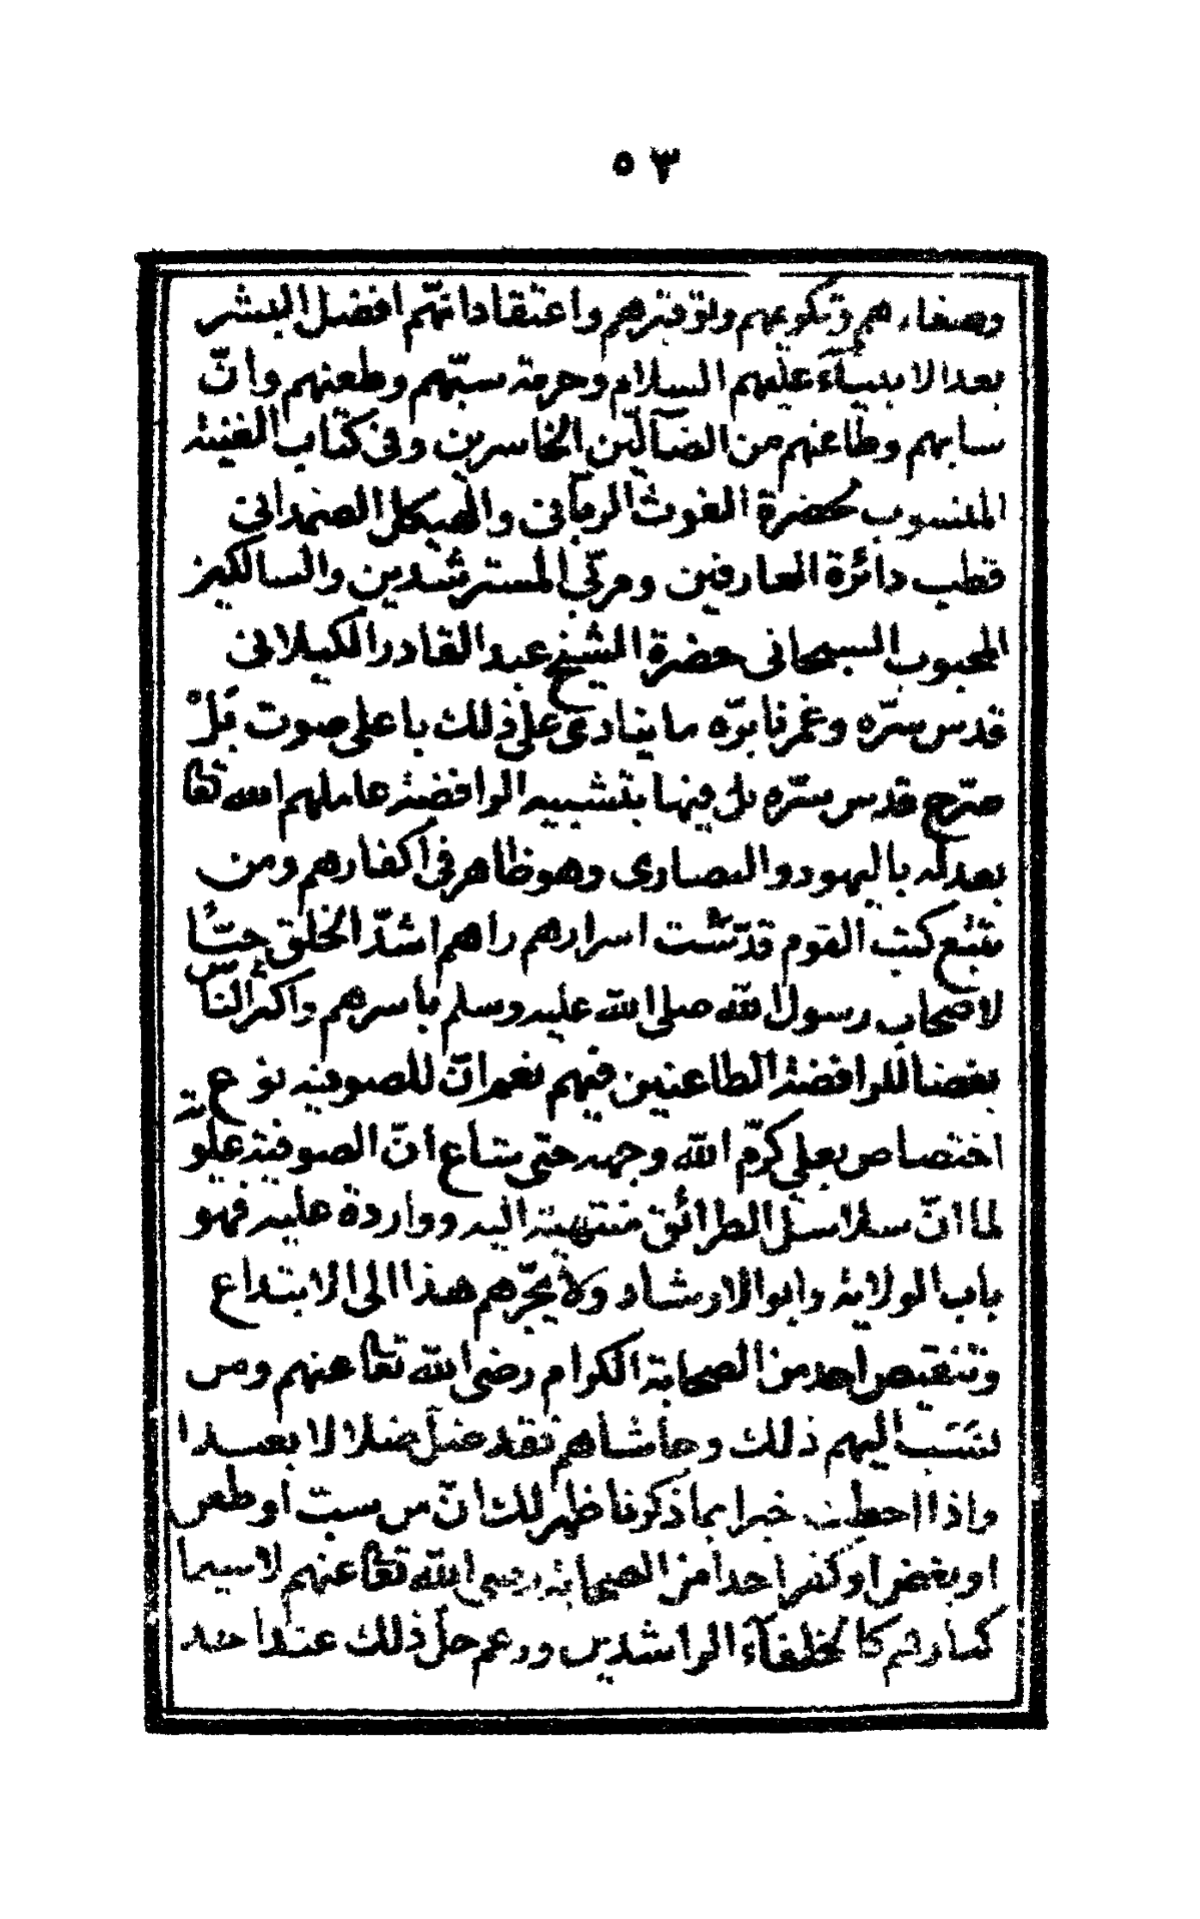 ٥٣
وصفاءهم وتكريمهم وتوقيرهم واعتقاد انهّم افضل البشر
بعد الانبيآء عليهم السلام وحرمة سبّهم وطعنهم وانّ
سابهم وطاعنهم من الضآلّين الخاسرين وفى كتاب الغنية
المنسوب لحضرة الغوث الربّانى والهيكل الصمدانى
قطب دائرة العارفين ومربّى المسترشدين والسالكين
المحبوب السبحانى حضرة الشيخ عبد القادر الكيلانى
قدس سرّه وغمرنا برّه ما ينادى على ذلك باعلى صوت بَلْ
صرّح قدس سرّه بل فيها بتشبيه الرافضة عاملهم الله تعا
بعدله باليهود والنصارى وهو ظاهر فى اكفارهم ومن
تتبع كتب القوم قدّست اسرارهم راهم اشدّ الخلق حبّاً
لاصحاب رسول الله صلى الله عليه وسلم باسرهم واكثر الناس
بغضا للرافضة الطاعنين فيهم نعم انّ للصوفية نوع
اختصاص بعلى كرّم الله وجهه حتى شاع أنّ الصوفية علوّية
لما انّ سلاسل الطرائق منتهية اليه وواردة عليه فهو
باب الولاية وابو الارشاد ولا يجرّهم هذا الى الابتداع
وتنقيص احد من الصحابة الكرام رضى الله تعا عنهم ومن
نسَب اليهم ذلك وحاشاهم فقد ضلّ ضلالا بعيدا
واذا احطت خبرا بما ذكرنا ظهر لك انّ من سبّ أو طعن
او بغض او كفر احدا من الصحابة رضى الله تعا عنهم لاسيما
كبارهم كالخلفآء الراشدين وزعم حلّ ذلك عند احد